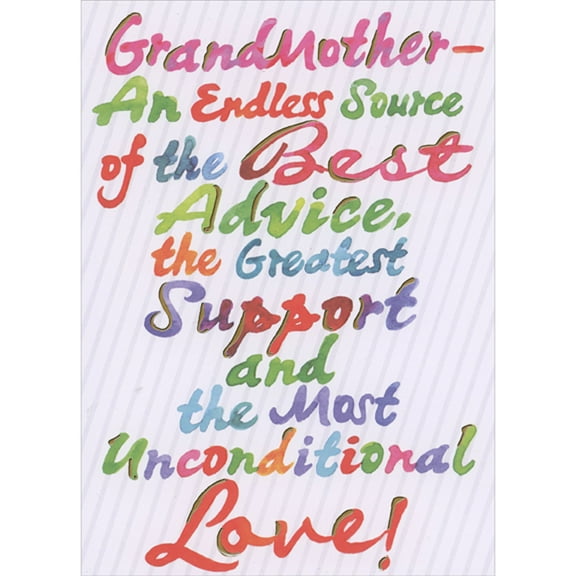 GrandMother—
An Endless Source
of the Best
Advice,
the Greatest
Support
and
the Most
Unconditional
Love!